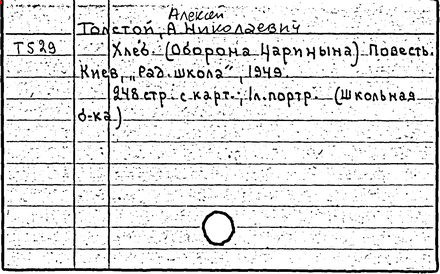 Алексей
Толстой, А. Николаевич
Т529 Хлеб. (Оборона Царицына). Повесть.
Киев, „Рад. школа", 1949.
248 стр. с карт.; 1 л. портр. (Школьная
б-ка)